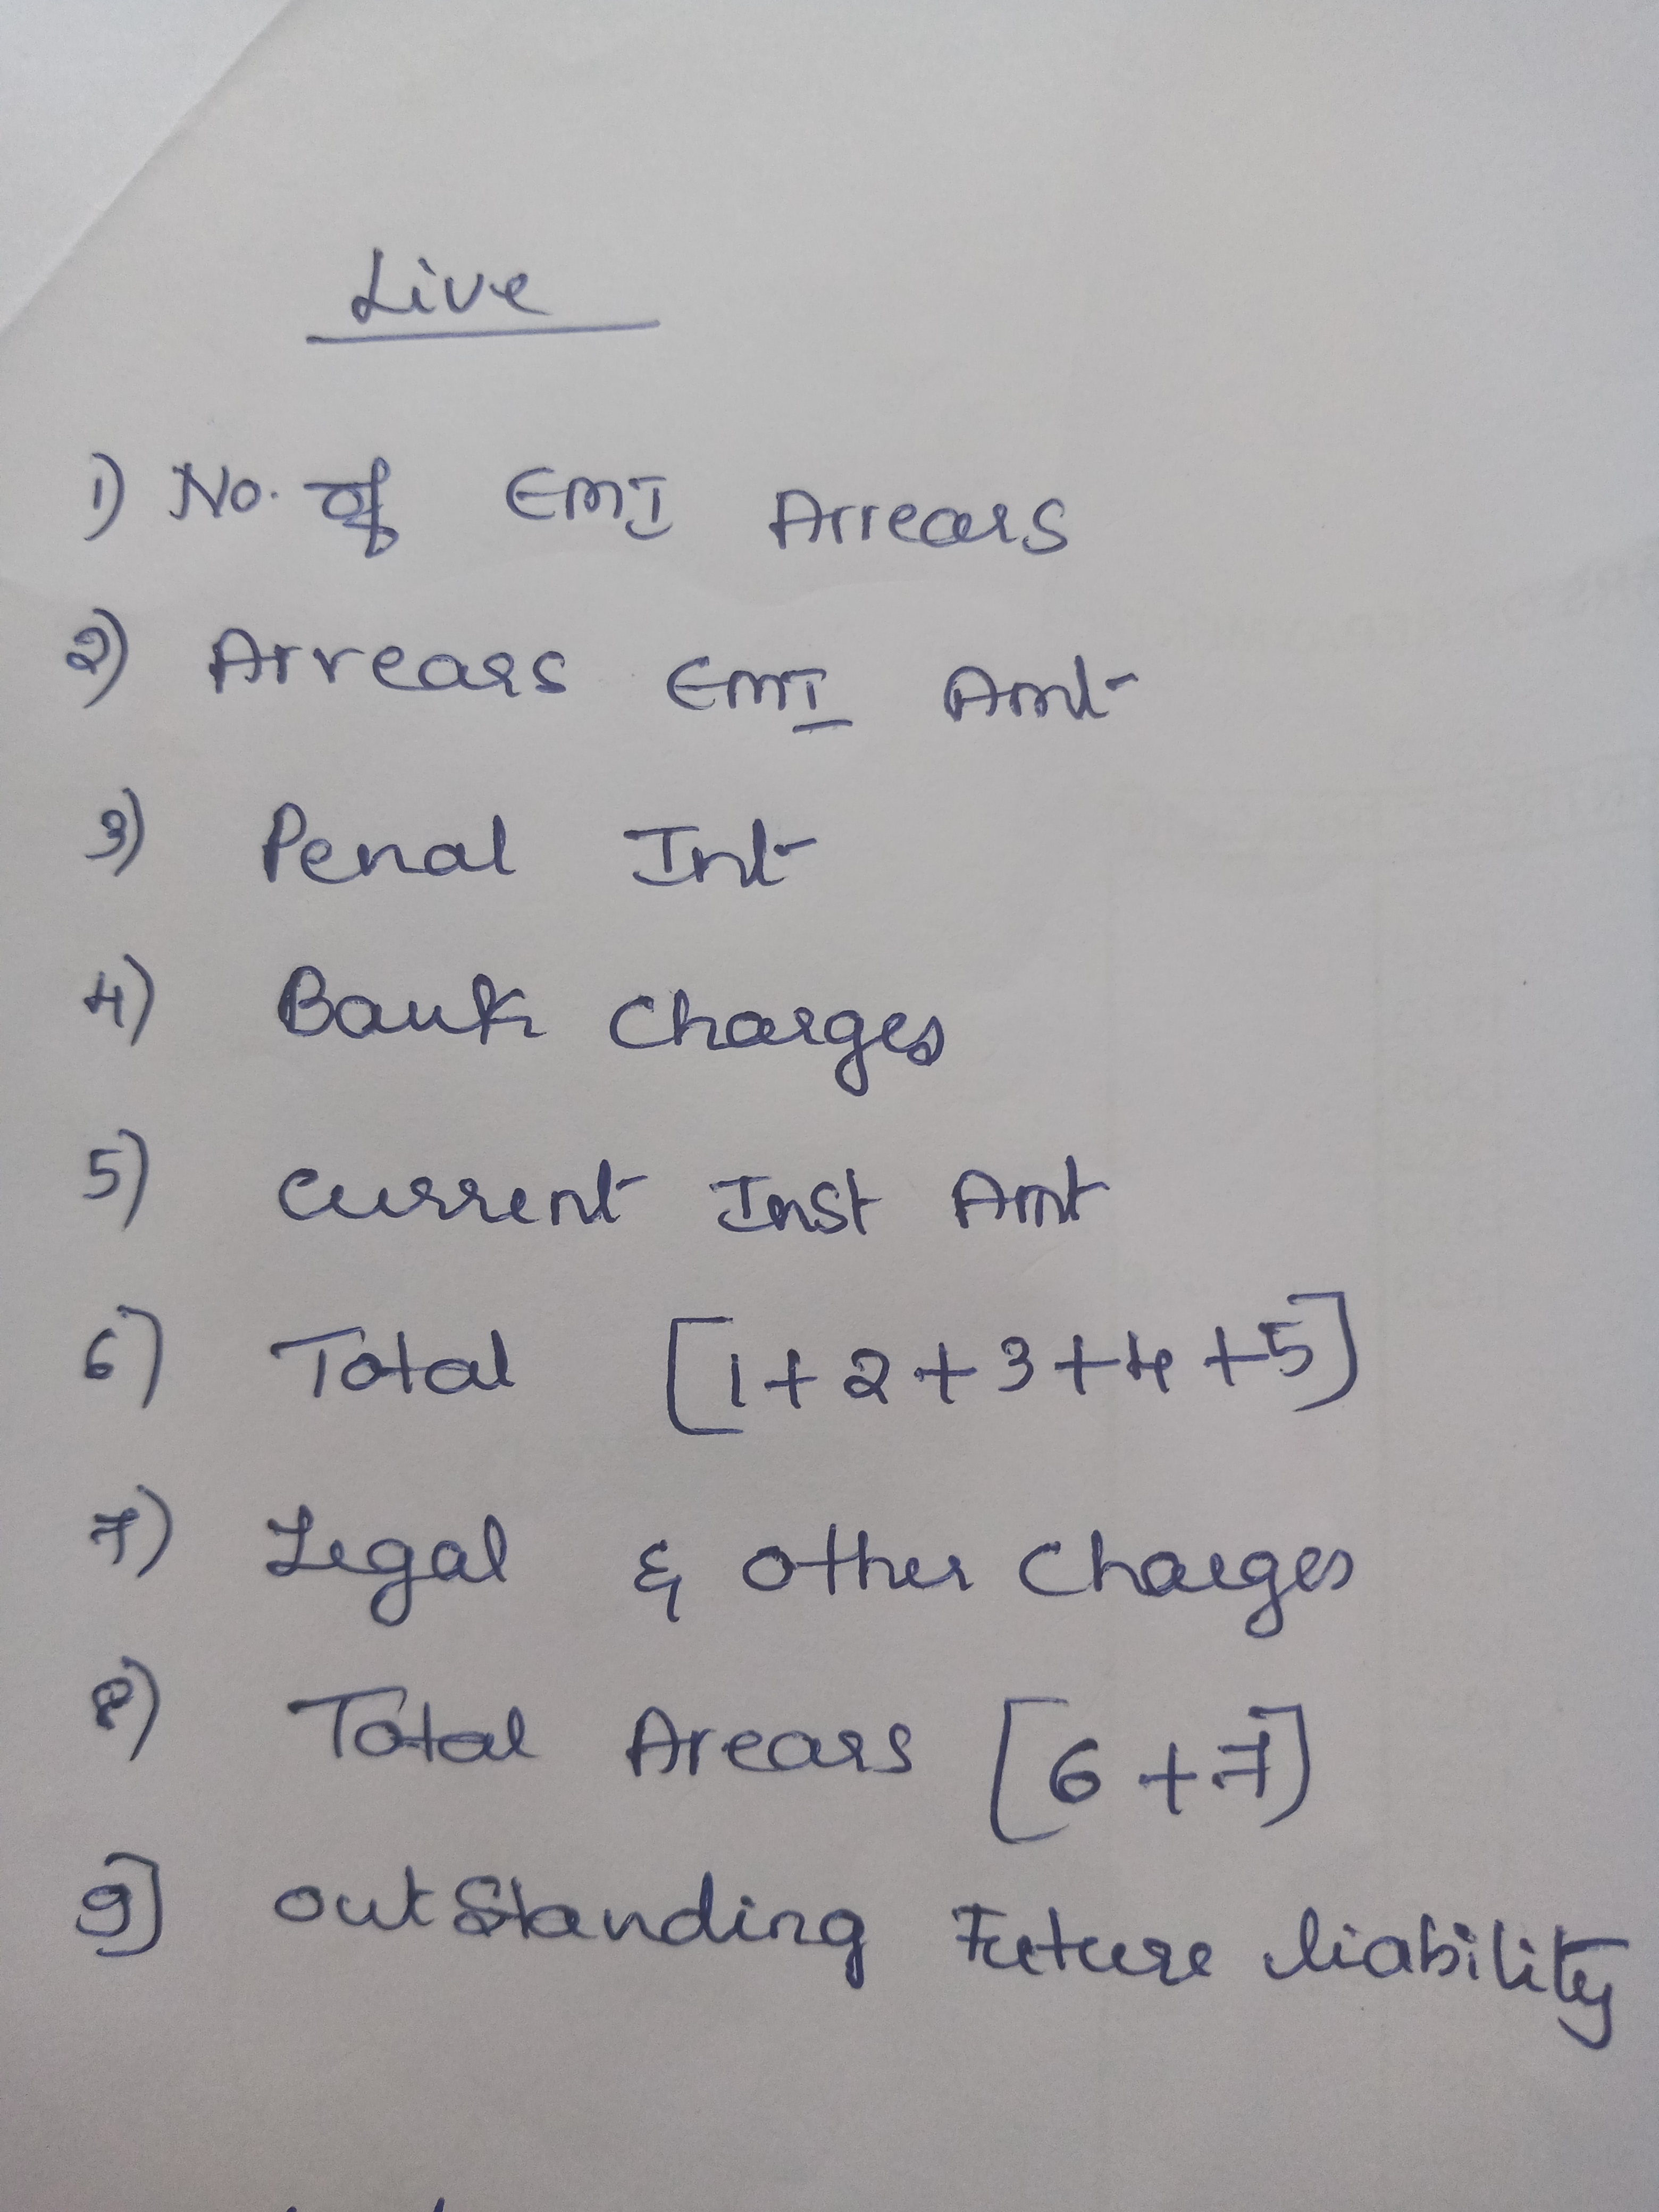 Live
1) No. of EMI Arrears
2) Arrears EMI Amt
3) Penal Int
4) Bank Charges
5) Current Inst Amt
6) Total [1+2+3+4+5]
7) Legal & other Charges
8) Total Arears [6+7]
9] outstanding Future liability